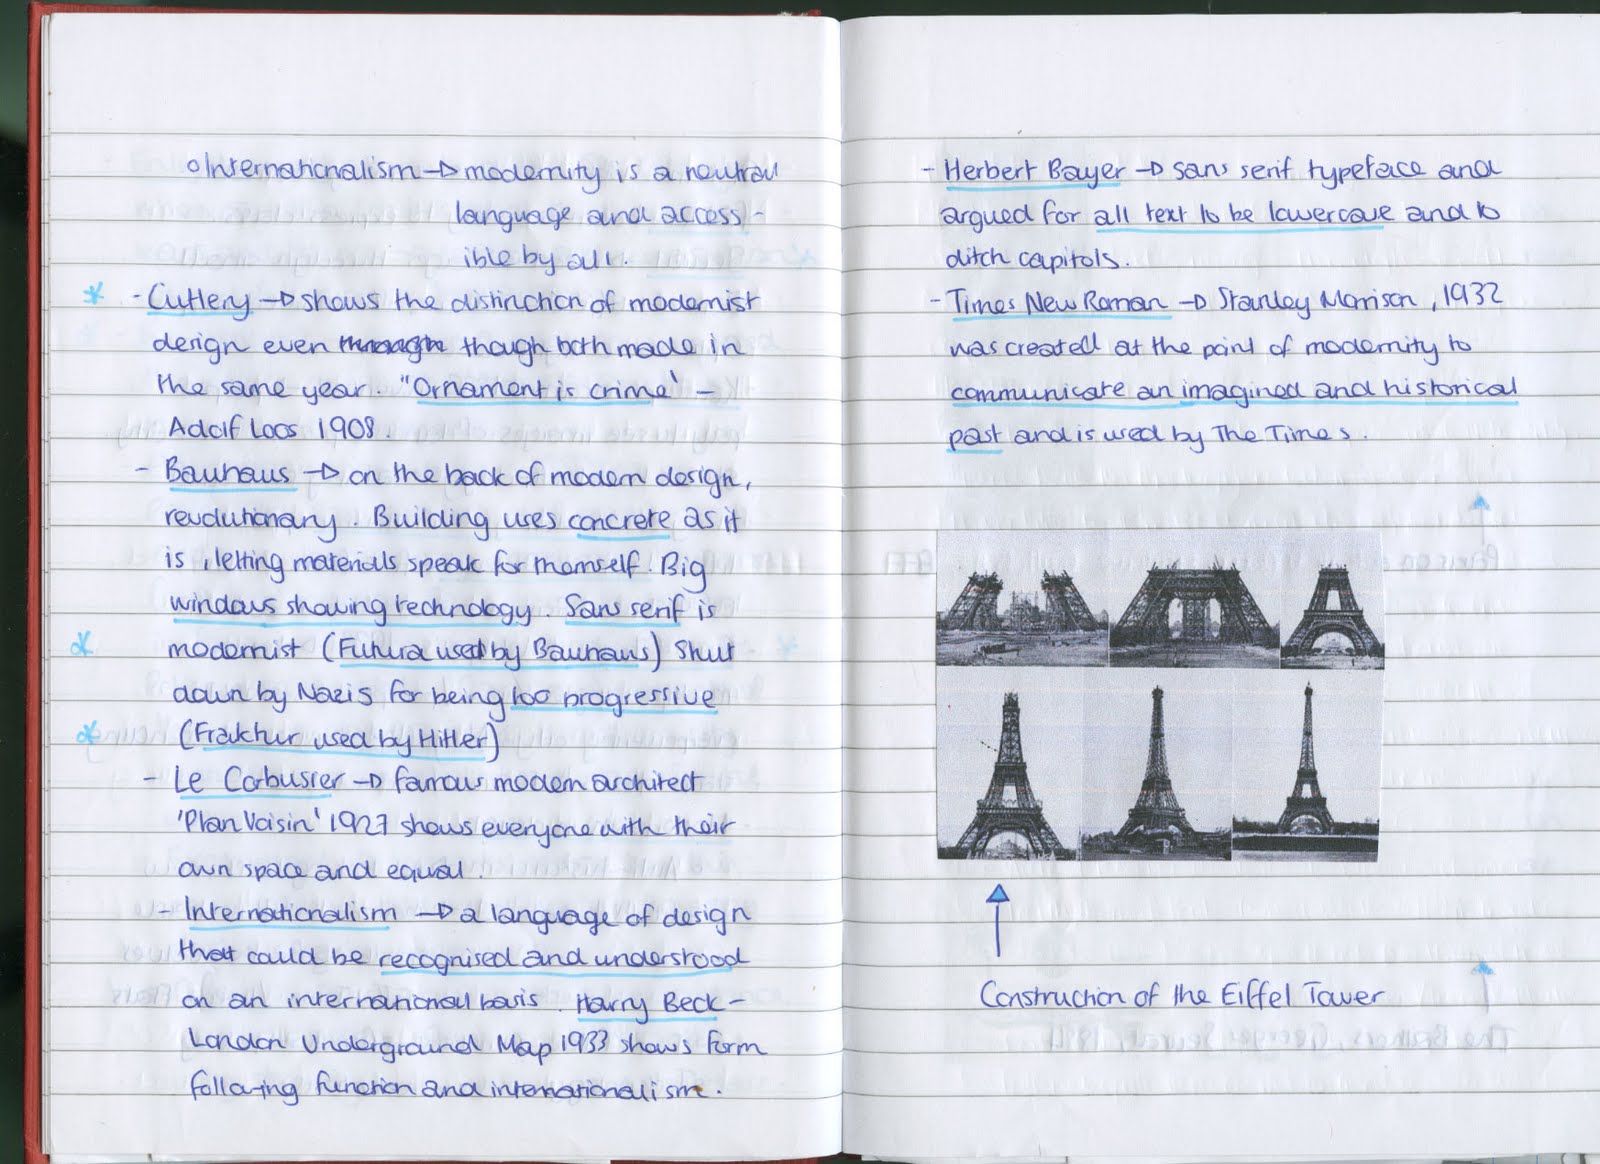 Internationalism → modernity is a neutral
language and access-
ible by all.
* - Cutlery → shows the distinction of modernist
design even though both made in
the same year. "Ornament is crime" -
Adolf Loos 1908.
- Bauhaus → on the back of modern design,
revolutionary. Building uses concrete as it
is, letting materials speak for themself. Big
windows showing technology. Sans serif is
* modernist (Futura used by Bauhaus) Shut
down by Nazis for being too progressive
* (Fraktur used by Hitler)
- Le Corbusier → famous modern architect
'Plan Voisin' 1927 shows everyone with their
own space and equal.
- Internationalism → a language of design
that could be recognised and understood
on an international basis. Harry Beck -
London Underground Map 1933 shows form
following function and internationalism.
- Herbert Bayer → sans serif typeface and
argued for all text to be lowercase and to
ditch capitols.
- Times New Roman → Stanley Morrison, 1932
was created at the point of modernity to
communicate an imagined and historical
past and is used by The Times.
Construction of the Eiffel Tower